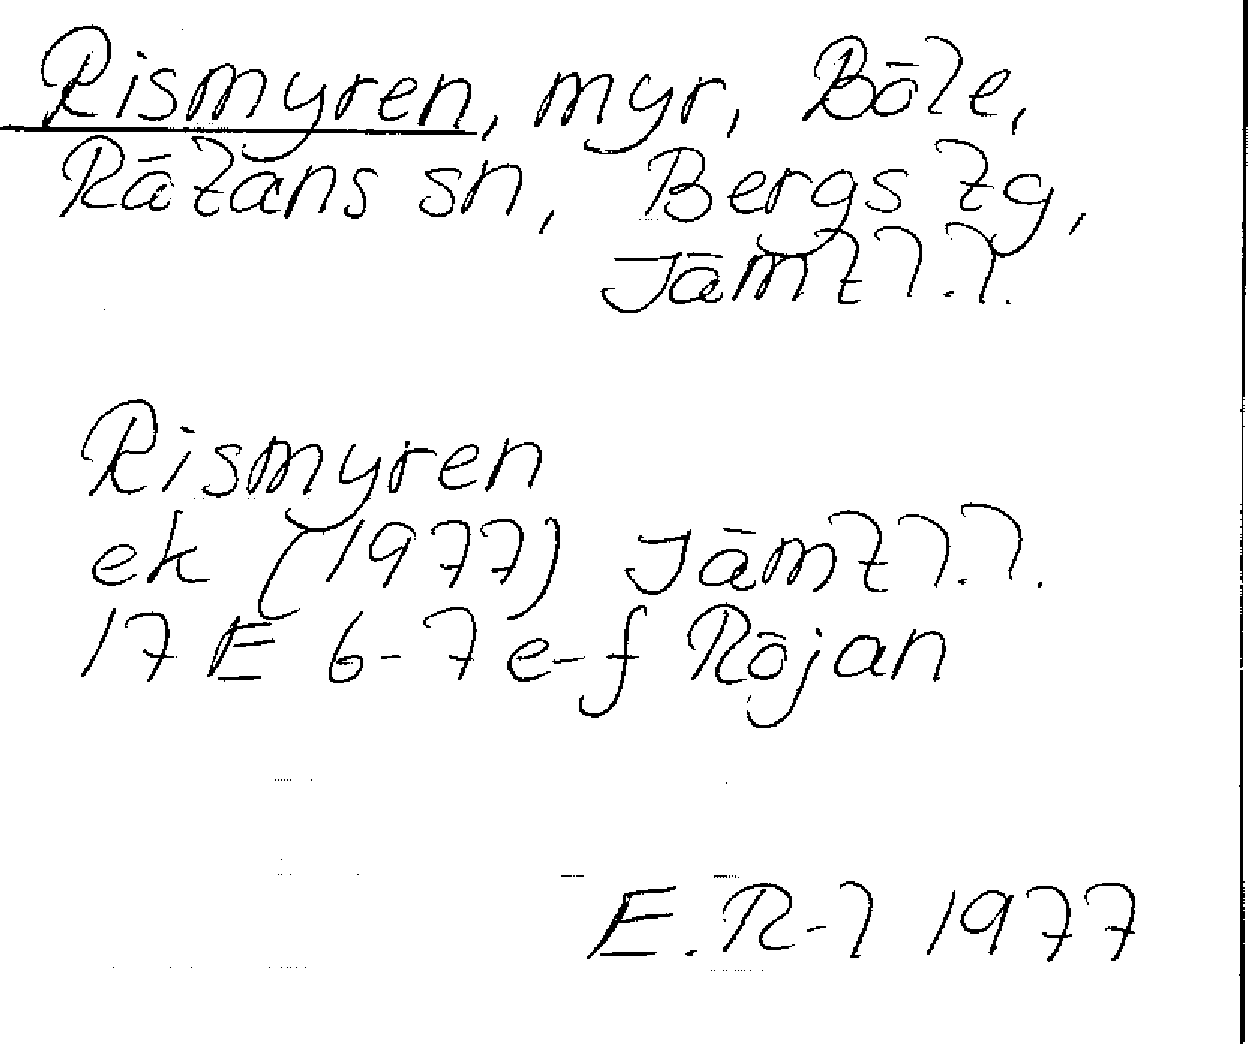 Rismyren, myr, Böle,
Rätans sn, Bergs tg,
Jämtl.l.
Rismyren
ek (1977) Jämtl.l.
17 E 6-7 e-f Röjan
E.R-l 1977